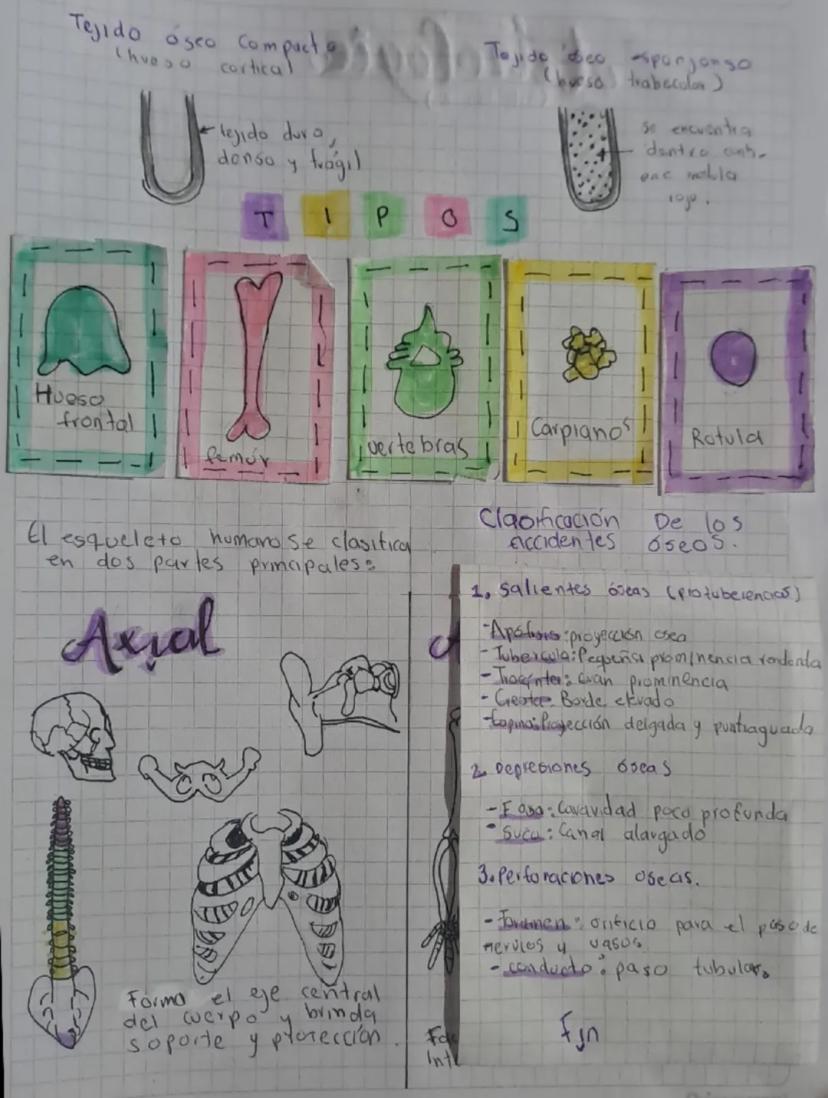 Tejido óseo compacto
(hueso cortical
Tejido óseo esponjoso
(hueso trabecular)
tejido duro,
denso y frágil
se encuentra
dentro
roja.
TIPOS
Hueso
frontal
femúr
vertebras
Carpianos
Rotula
El esqueleto humano se clasifica
en dos partes principales:
Axial
Forma el eje central
del cuerpo y brinda
soporte y ptotección.
Clasificación De los
accidentes óseos.
1. Salientes óseas (protuberencias)
- : proyección osea
- Tubercula: Pequeña prominencia rendonda
- : Gran prominencia
- : Borde elevado
- Espina: Proyección delgada y puntiaguado
2. Depresiones óseas
- Fosa: Cavavidad poco profunda
- Suco: Canal alargado
3. Perforaciones oseas.
- Foramen: orificio para el paso de
nervios y vasos
- conducto: paso tubular.
Fjn